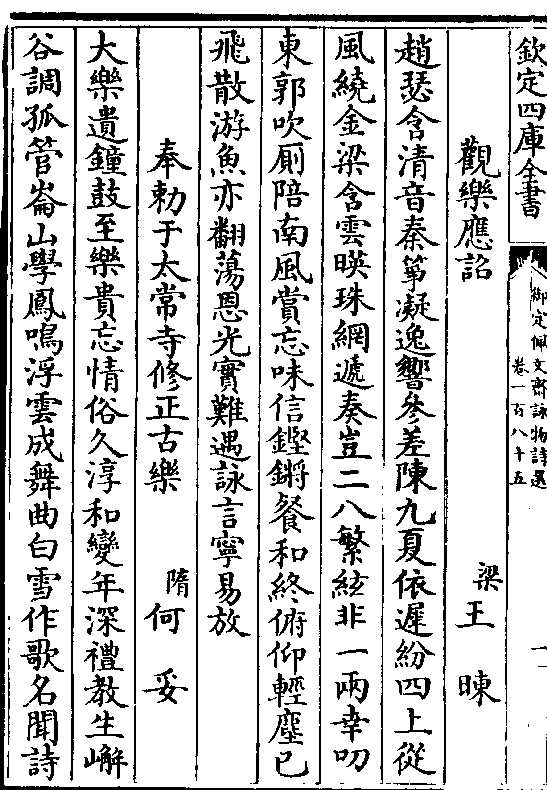 欽定四庫全書
御定佩文齋詠物詩選
卷一百八十五
一
觀樂應詔
梁王暕
趙瑟含清音秦箏凝逸響參差陳九夏依遲紛四上從
風繞金梁含雲映珠網遞奏豈二八繁絃非一兩幸叨
東郭吹厠陪南風賞忘味信鏗鏘餐和終俯仰輕塵已
飛散游魚亦翻蕩恩光實難遇詠言寧易放
奉勅于太常寺修正古樂
隋何妥
大樂遺鐘鼓至樂貴忘情俗久淳和變年深禮教生嶰
谷調孤管崙山學鳳鳴浮雲成舞曲白雪作歌名聞詩